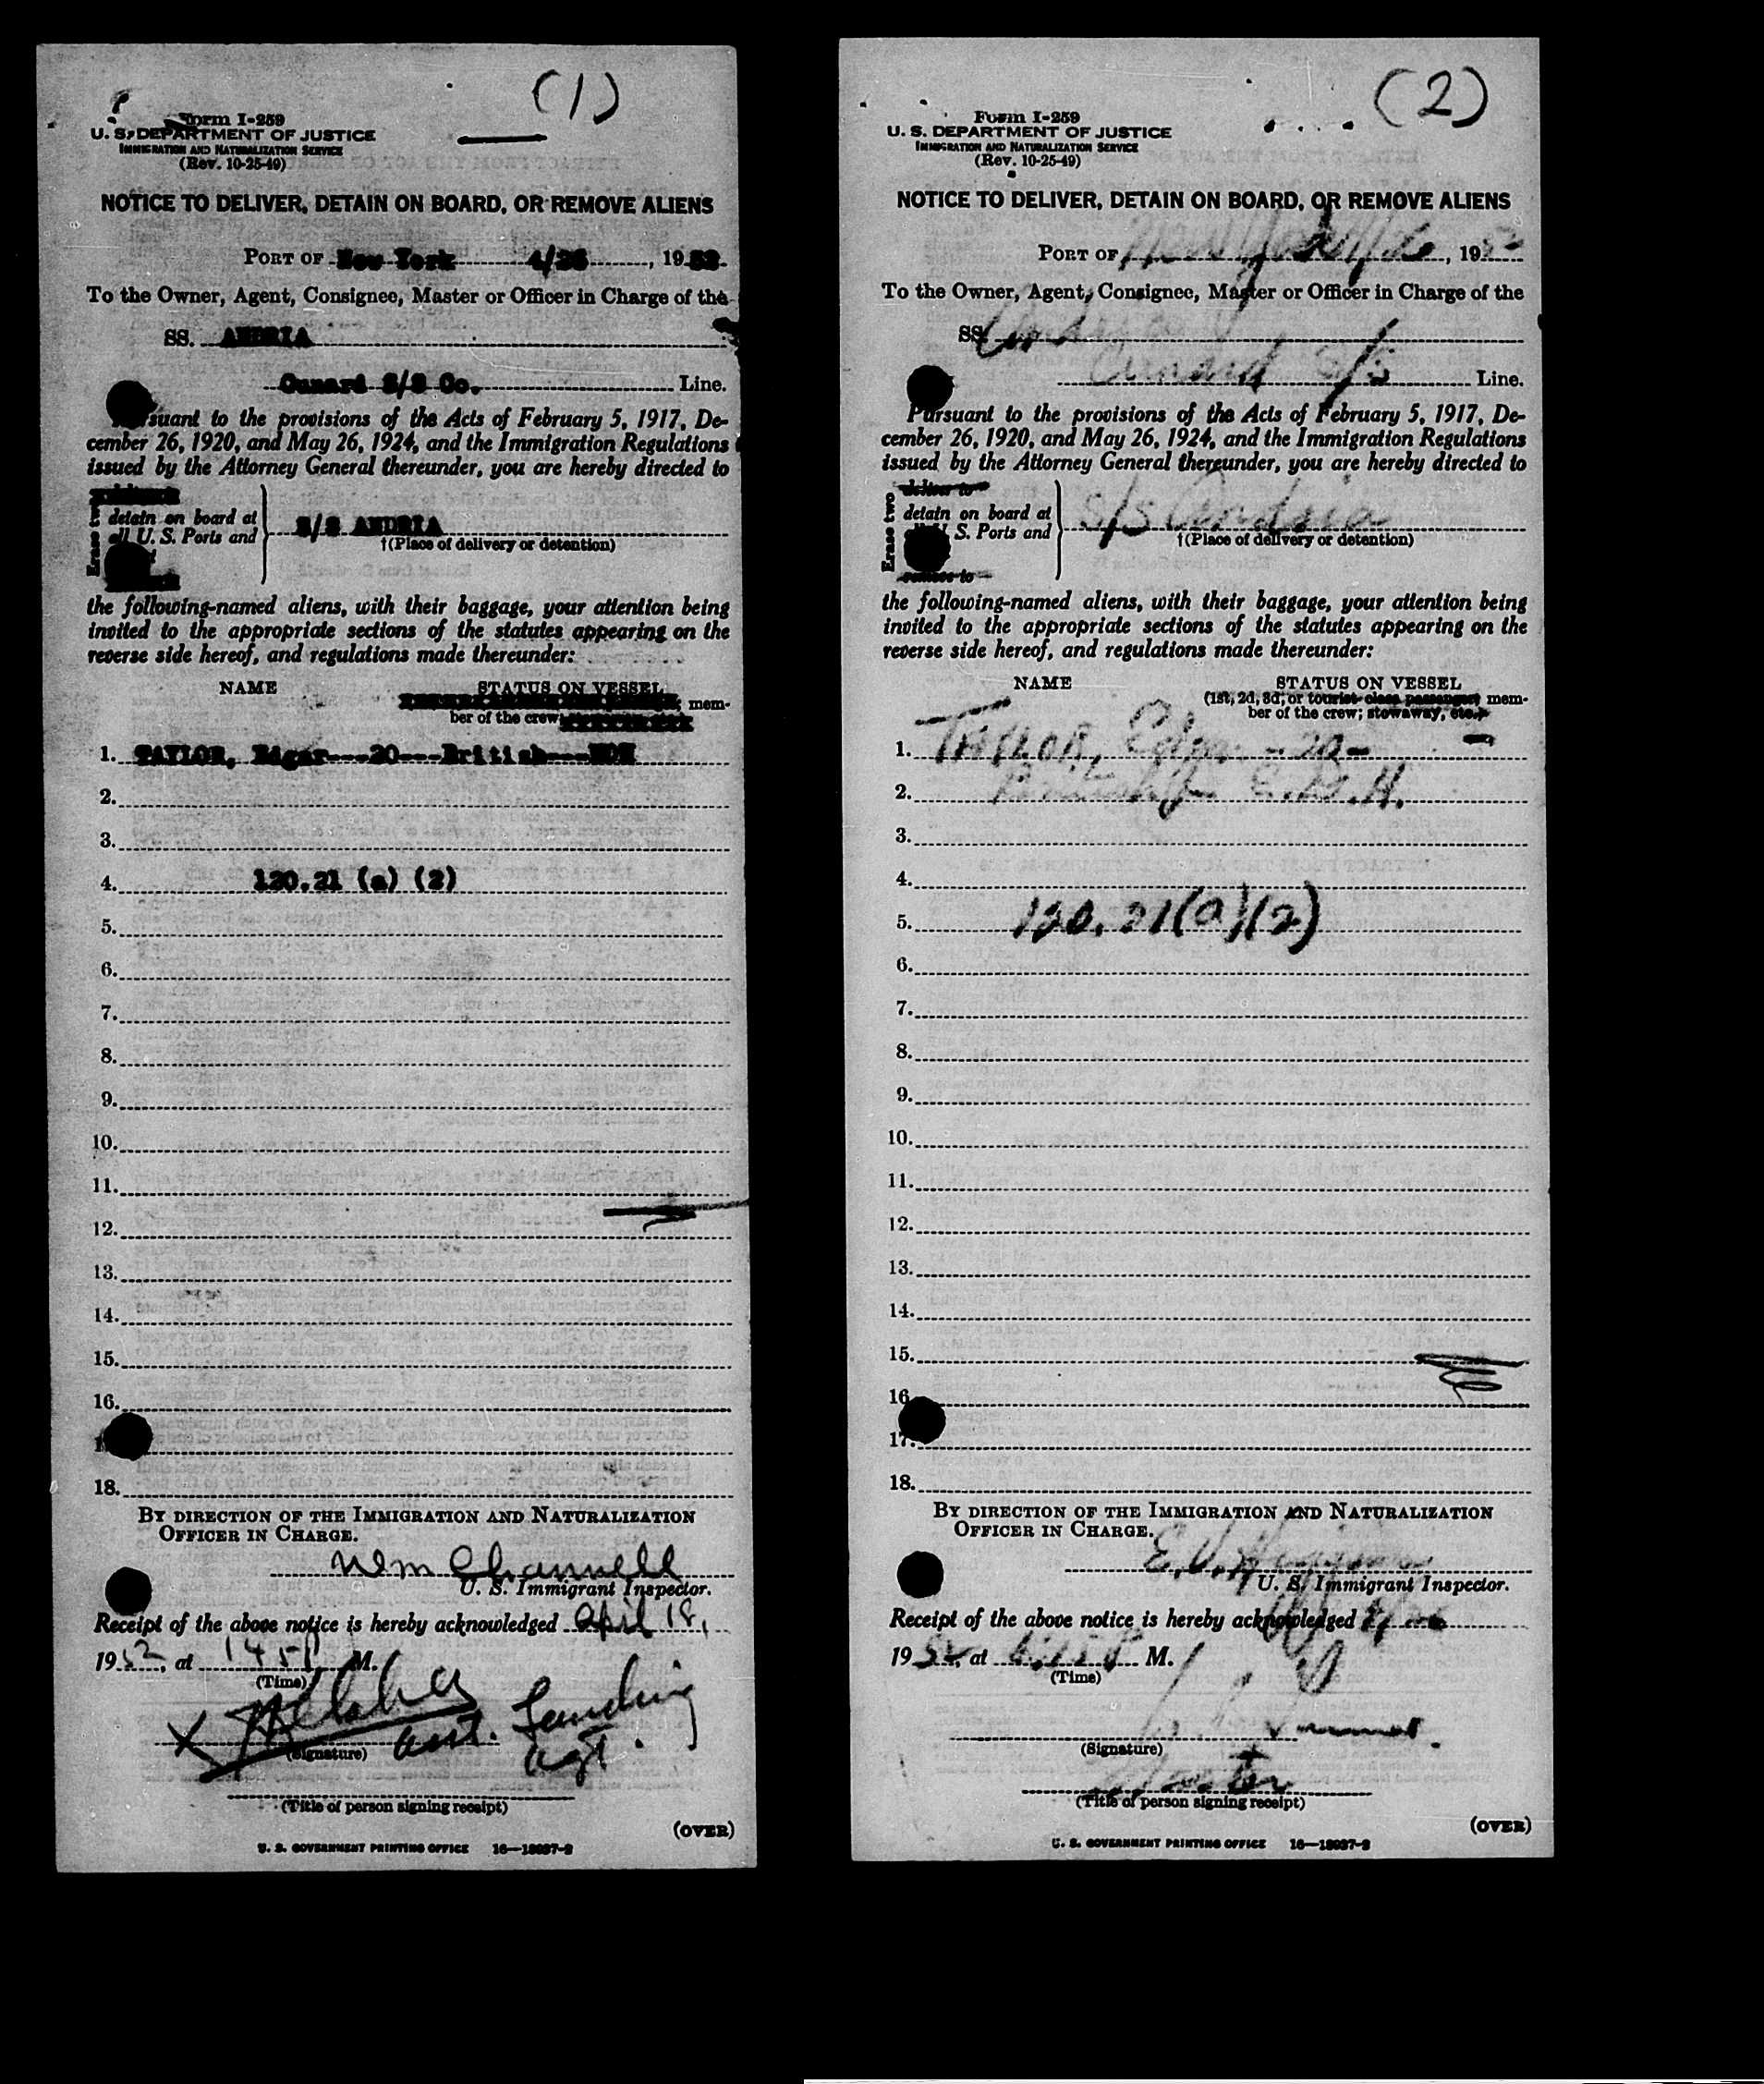 (1)
Form I-259
U. S. DEPARTMENT OF JUSTICE
IMMIGRATION AND NATURALIZATION SERVICE
(Rev. 10-25-49)
NOTICE TO DELIVER, DETAIN ON BOARD, OR REMOVE ALIENS
PORT OF New York 4/26, 1952
To the Owner, Agent, Consignee, Master or Officer in Charge of the
SS. ANDRIA
Cunard S/S Co. Line.
Pursuant to the provisions of the Acts of February 5, 1917, De-
cember 26, 1920, and May 26, 1924, and the Immigration Regulations
issued by the Attorney General thereunder, you are hereby directed to
Erase two
detain on board at
all U. S. Ports and
S/S ANDRIA
†(Place of delivery or detention)
the following-named aliens, with their baggage, your attention being
invited to the appropriate sections of the statutes appearing on the
reverse side hereof, and regulations made thereunder:
NAME STATUS ON VESSEL
mem-
ber of the crew;
1. TAYLOR, Edgar---20---British---
2.
3.
4. 120.21 (a) (2)
5.
6.
7.
8.
9.
10.
11.
12.
13.
14.
15.
16.
1
18.
BY DIRECTION OF THE IMMIGRATION AND NATURALIZATION
OFFICER IN CHARGE.
Wm Channell
U. S. Immigrant Inspector.
Receipt of the above notice is hereby acknowledged April 18,
1952, at 145 P M.
(Time)
X asst. Landing
agt.
(Signature)
(Title of person signing receipt)
(OVER)
U. S. GOVERNMENT PRINTING OFFICE 16—18037-2
(2)
Form I-259
U. S. DEPARTMENT OF JUSTICE
IMMIGRATION AND NATURALIZATION SERVICE
(Rev. 10-25-49)
NOTICE TO DELIVER, DETAIN ON BOARD, OR REMOVE ALIENS
PORT OF New York, 195
To the Owner, Agent, Consignee, Master or Officer in Charge of the
SS. Andria
Cunard S/S Line.
Pursuant to the provisions of the Acts of February 5, 1917, De-
cember 26, 1920, and May 26, 1924, and the Immigration Regulations
issued by the Attorney General thereunder, you are hereby directed to
Erase two
deliver to
detain on board at
all U. S. Ports and
remove to
S/S Andria
†(Place of delivery or detention)
the following-named aliens, with their baggage, your attention being
invited to the appropriate sections of the statutes appearing on the
reverse side hereof, and regulations made thereunder:
NAME STATUS ON VESSEL
(1st, 2d, 3d, or tourist class passenger; mem-
ber of the crew; stowaway, etc.)
1. TAYLOR, Edgar - 20 -
2. British
3.
4.
5. 120.21(a)(2)
6.
7.
8.
9.
10.
11.
12.
13.
14.
15.
16.
17.
18.
BY DIRECTION OF THE IMMIGRATION AND NATURALIZATION
OFFICER IN CHARGE.
U. S. Immigrant Inspector.
Receipt of the above notice is hereby acknowledged
1952, at M.
(Time)
(Signature)
Master
(Title of person signing receipt)
(OVER)
U. S. GOVERNMENT PRINTING OFFICE 16—18037-2